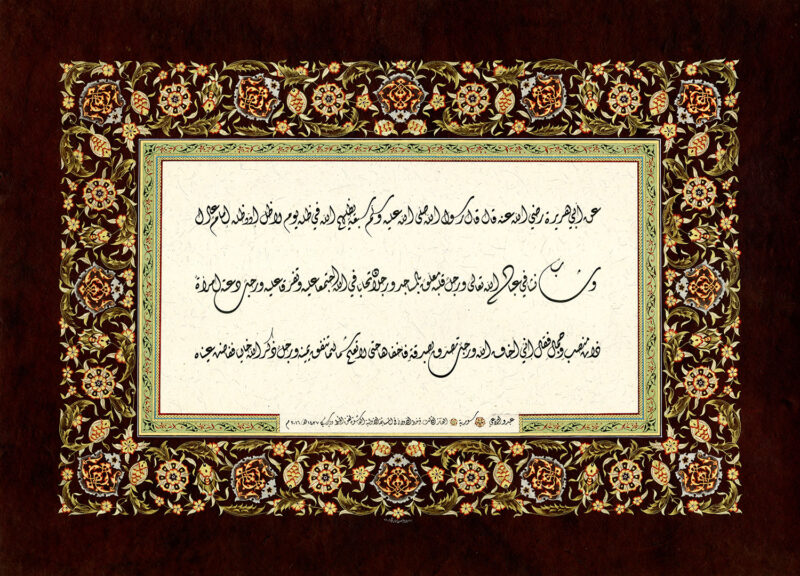 عن أبي هريرة رضي الله عنه قال قال رسول الله صلى الله عليه وسلم سبعة يظلهم الله في ظله يوم لا ظل إلا ظله إمام عادل
وشاب نشأ في عبادة الله تعالى ورجل قلبه معلق بالمساجد ورجلان تحابا في الله اجتمعا عليه وتفرقا عليه ورجل دعته امرأة
ذات منصب وجمال فقال إني أخاف الله ورجل تصدق بصدقة فأخفاها حتى لا تعلم شماله ما تنفق يمينه ورجل ذكر الله خاليا ففاضت عيناه
سورية